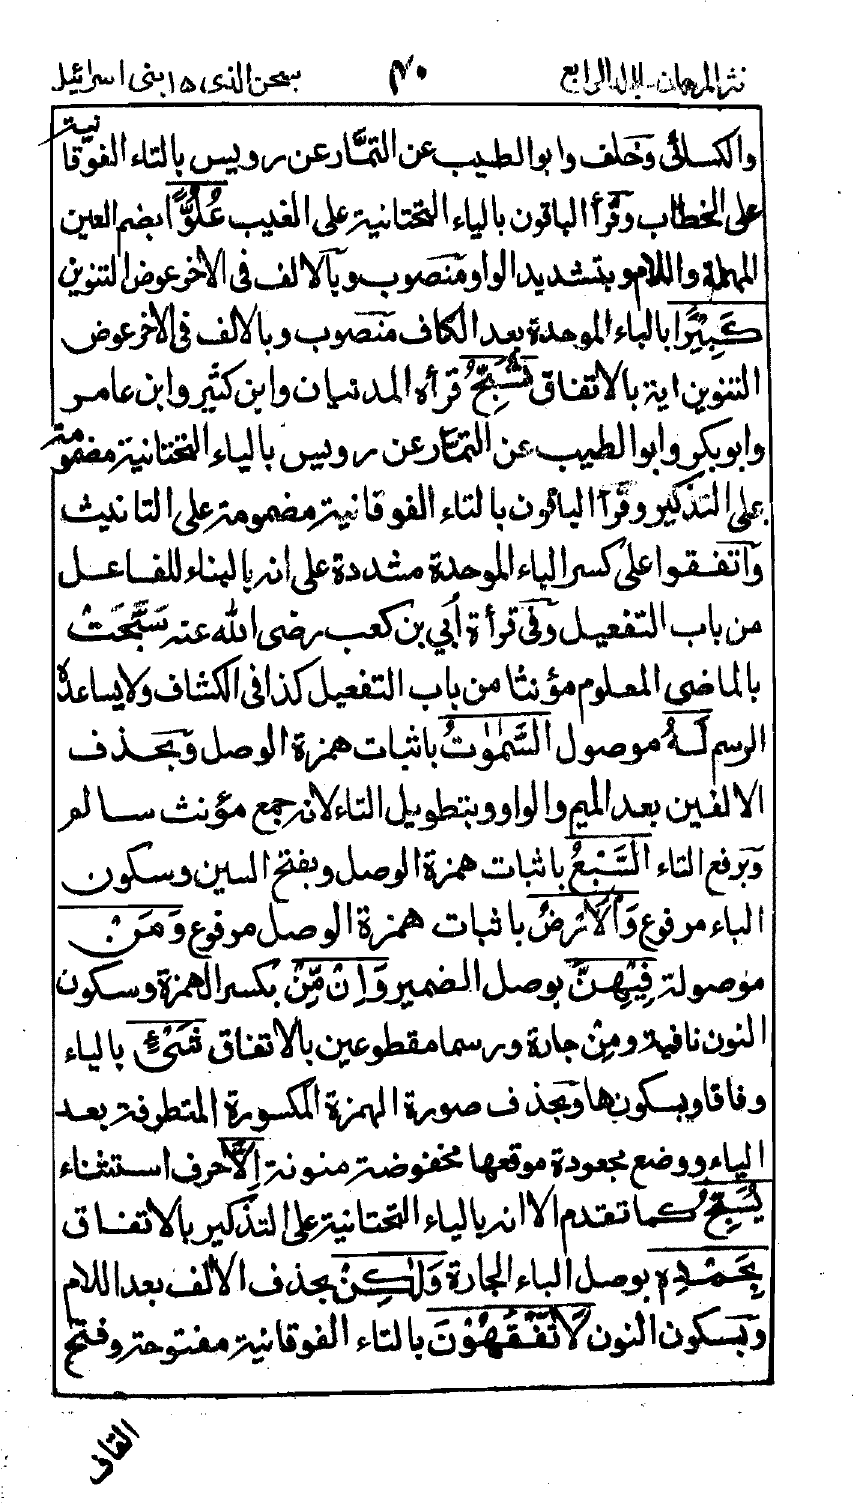 نثر المرجان-الجلد الرابع ٤٠ سبحن الذى ١٥ بنى اسرائيل
والكسائى وخلف وابو الطيب عن التمّار عن رويس بالتاء الفوقانية
على الخطاب وقرأ الباقون بالياء التحتانية على الغيب عُلُوًّا بضم العين
المهملة واللام وبتشديد الواو منصوب وبالالف فى الاخر عوض التنوين
كَبِيْرًا بالباء الموحدة بعد الكاف منصوب وبالالف فى الاخر عوض
التنوين اية بالاتفاق تُسَبِّحُ قرأه المدنيان وابن كثير وابن عامر
وابوبكر وابو الطيب عن التمّار عن رويس بالياء التحتانية مضمومة
على التذكير وقرأ الباقون بالتاء الفوقانية مضمومة على التانيث
واتفقوا على كسر الباء الموحدة مشددة على انه بالبناء للفاعل
من باب التفعيل وفى قرأة أبي بن كعب رضى الله عنه سَبَّحَتْ
بالماضى المعلوم مؤنثا من باب التفعيل كذا فى الكشاف ولا يساعده
الرسم لَهُ موصول السَّمٰوٰتُ باثبات همزة الوصل وبحذف
الالفين بعد الميم والواو وبتطويل التاء لانه جمع مؤنث سالم
وبرفع التاء السَّبْعُ باثبات همزة الوصل وبفتح السين وسكون
الباء مرفوع وَالْاَرْضُ باثبات همزة الوصل مرفوع وَمَنْ
موصولة فِيْهِنَّ بوصل الضمير وَاِنْ مِّنْ بكسر الهمزة وسكون
النون نافية ومِنْ جارة ورسما مقطوعين بالاتفاق شَىْءٍ بالياء
وفاقا وبسكونها وبحذف صورة الهمزة المكسورة المتطرفة بعد
الياء ووضع مجعودة موقعها مخفوضة منونة اِلَّا حرف استثناء
يُسَبِّحُ كما تقدم الا انه بالياء التحتانية على التذكير بالاتفاق
بِحَمْدِهٖ بوصل الباء الجارة وَلٰكِنْ بحذف الالف بعد اللام
وبسكون النون لَا تَفْقَهُوْنَ بالتاء الفوقانية مفتوحة وفتح
القاف